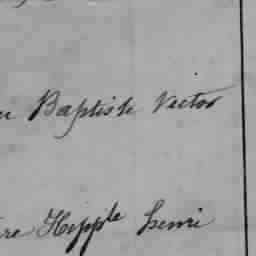 Baptiste Victor
Hippte henri